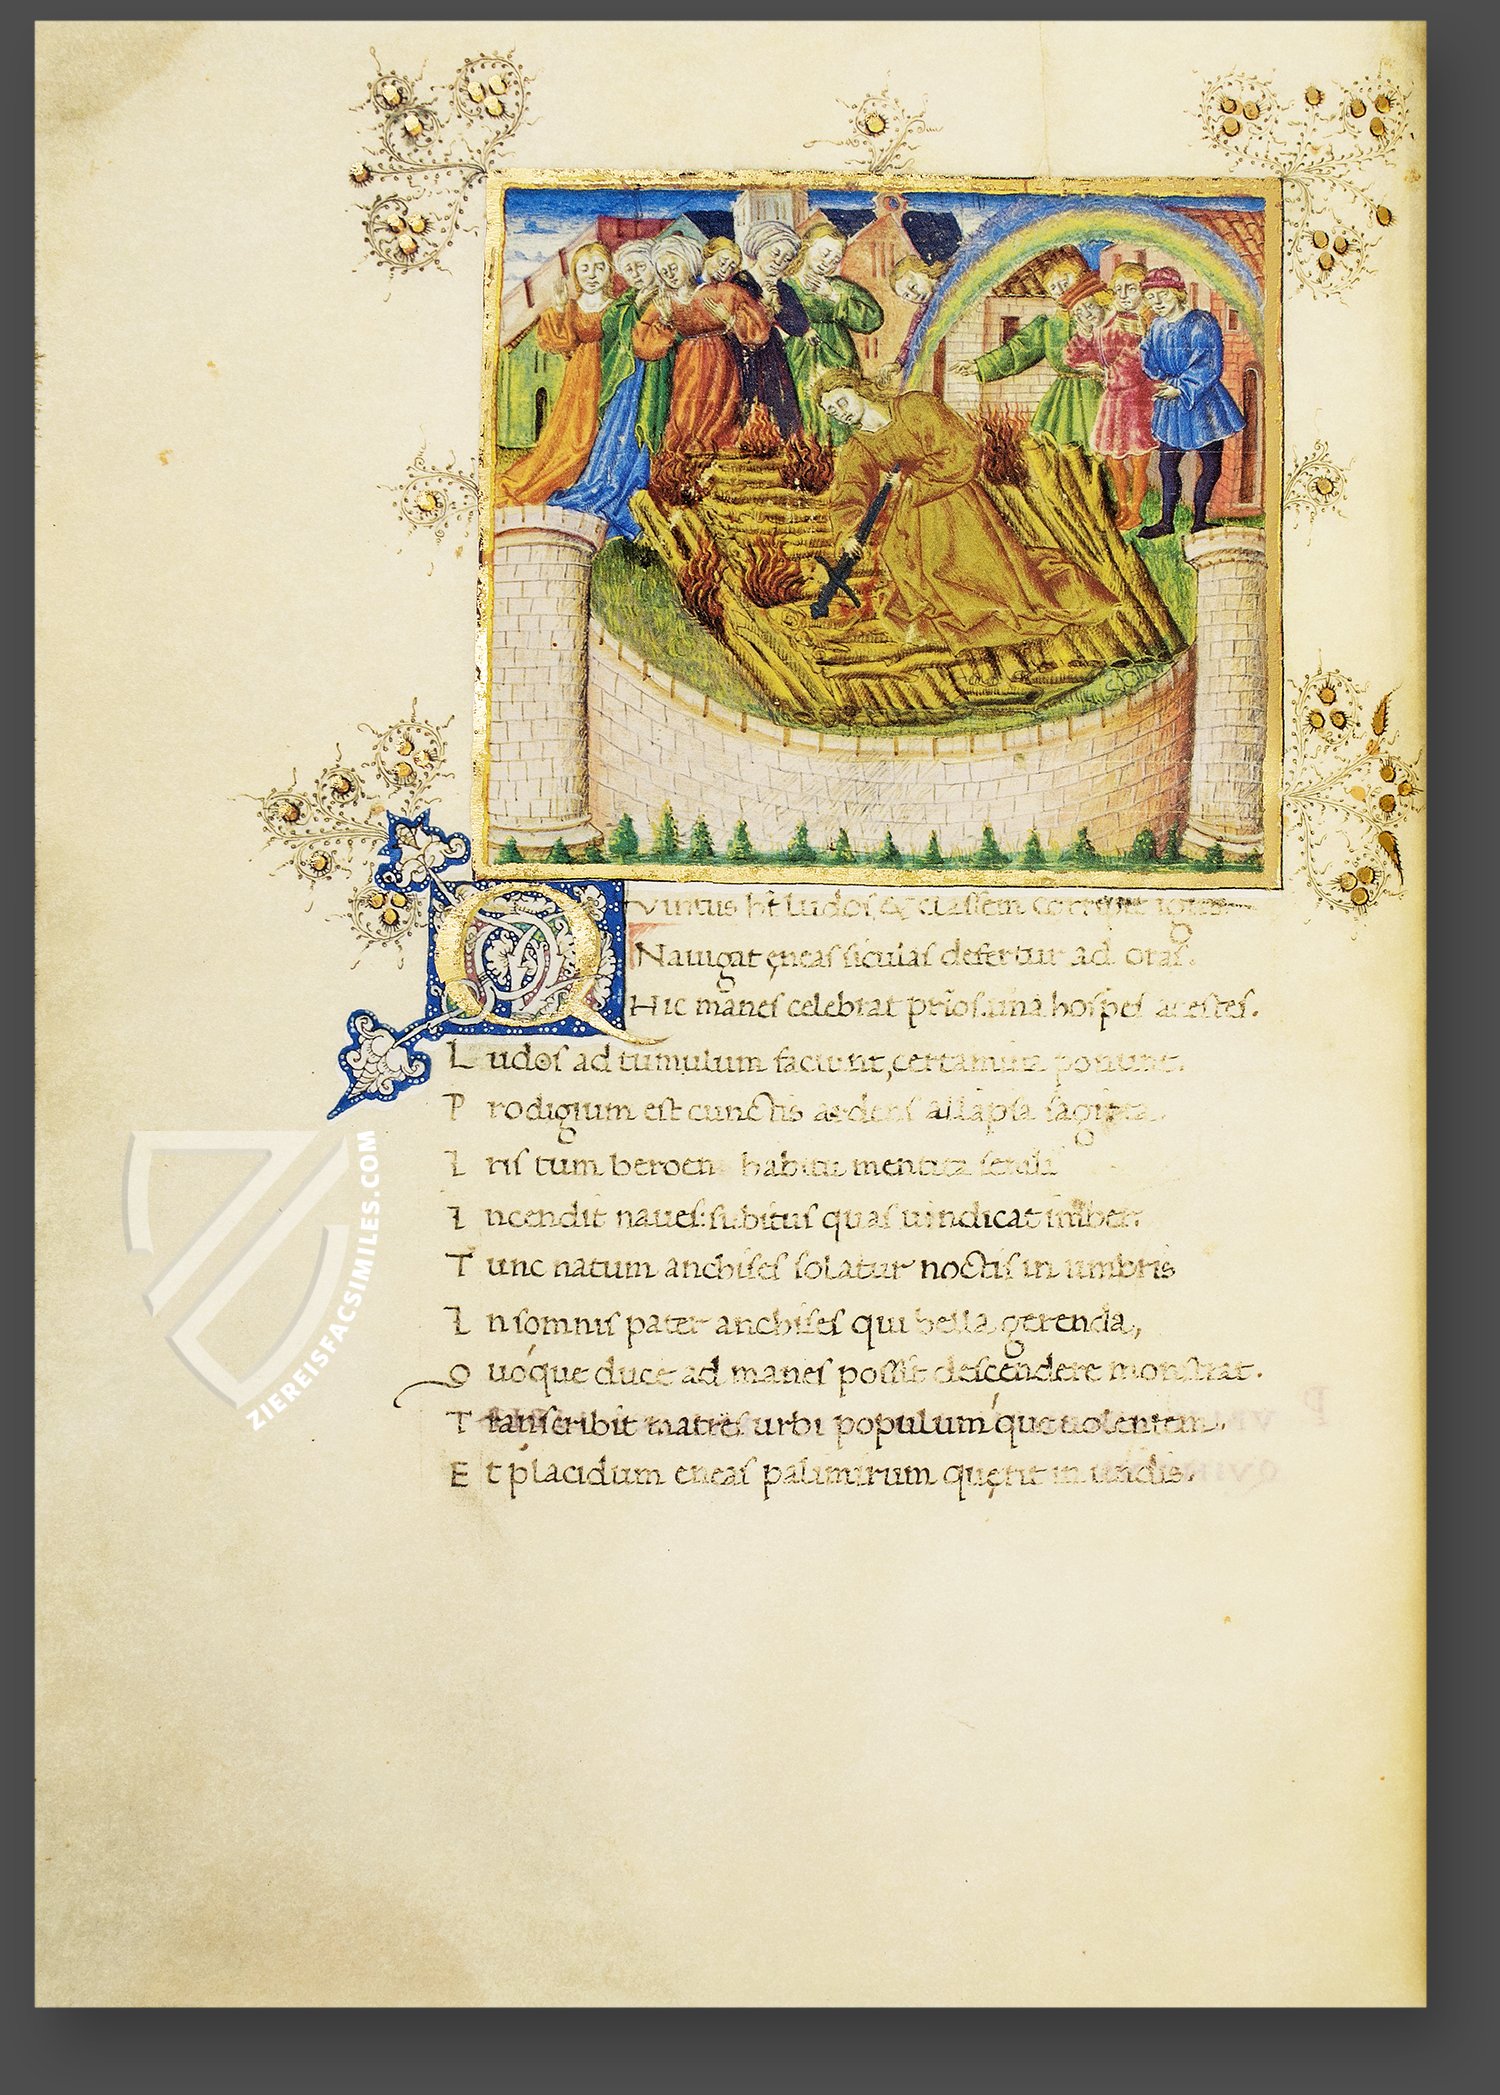 Quintus ht ludos, & classem corripit ignis
Nauigat ęneas siculas defertur ad oras.
Hic manes celebrat prios. una hospes acestes.
Ludos ad tumulum faciunt, certamina ponunt.
Prodigium est cunctis ardens allapsa sagitta.
Iris tum beroen habitu mentita senili
Incendit naues: subitus quas uindicat imber.
Tunc natum anchises solatur noctis in umbris
In somnis pater anchises qui bella gerenda,
Quoque duce ad manes possit descendere monstrat.
Transcribit matres urbi populumque uolentem.
Et placidum eneas palinurum quęrit in undis.
ZIEREISFACSIMILES.COM